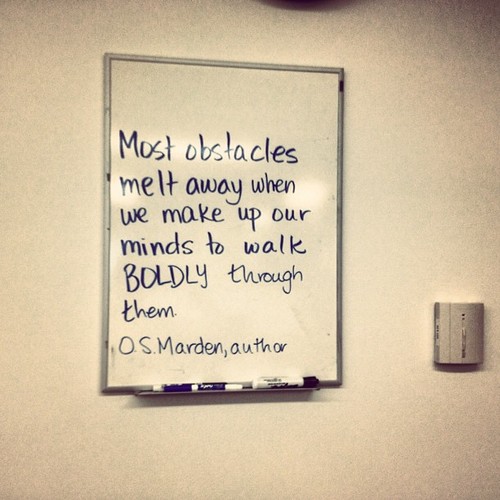 Most obstacles
melt away when
we make up our
minds to walk
BOLDLY through
them.
O.S.Marden, author